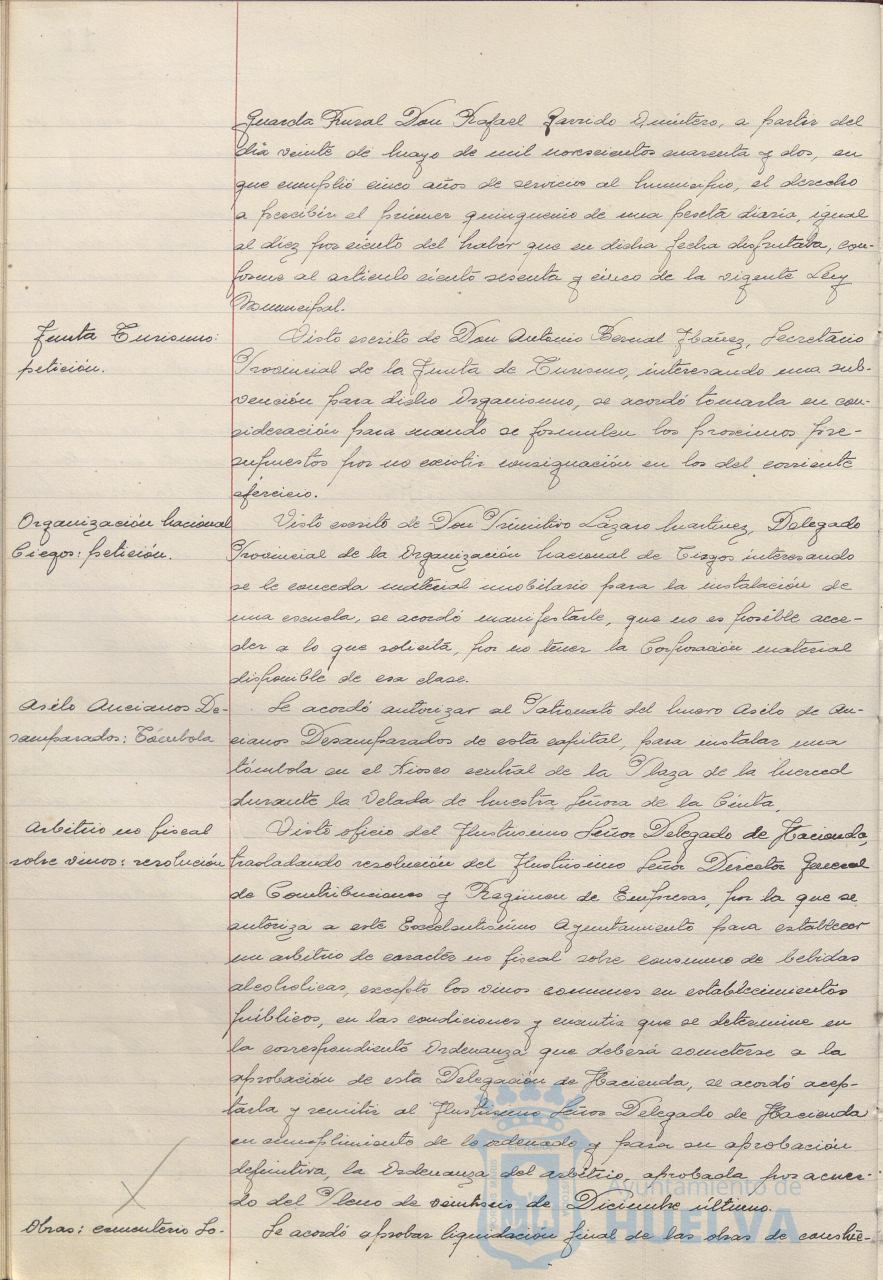 Guarda Rural Don Rafael Garrido Quintero, a partir del
día veinte de Mayo de mil novecientos cuarenta y dos, en
que cumplió cinco años de servicios al Municipio, el derecho
a percibir el primer quinquenio de una peseta diaria, igual
al diez por ciento del haber que en dicha fecha disfrutaba, con-
forme al artículo ciento sesenta y cinco de la vigente Ley
Municipal.
Junta Turismo:
petición.
Visto escrito de Don Antonio Bernal Ibáñez, Secretario
Provincial de la Junta de Turismo, interesando una sub-
vención para dicho Organismo, se acordó tomarla en con-
sideración para cuando se formulen los proximos pre-
supuestos por no existir consignación en los del corriente
ejercicio.
Organización Nacional
Ciegos: petición.
Visto escrito de Don Primitivo Lázaro Martinez, Delegado
Provincial de la Organización Nacional de Ciegos interesando
se le conceda material mobiliario para la instalación de
una escuela, se acordó manifestarle, que no es posible acce-
der a lo que solicita, por no tener la Corporación material
disponible de esa clase.
Asilo Ancianos De-
samparados: Tómbola
Se acordó autorizar al Patronato del Nuevo Asilo de An-
cianos Desamparados de esta capital, para instalar una
tómbola en el Kiosco central de la Plaza de la Merced
durante la Velada de Nuestra Señora de la Cinta.
Arbitrio no fiscal
sobre vinos: resolución
Visto oficio del Ilustrisimo Señor Delegado de Hacienda,
trasladando resolución del Ilustrisimo Señor Director General
de Contribuciones y Regimen de Empresas, por la que se
autoriza a este Excelentisimo Ayuntamiento para establecer
un arbitrio de caracter no fiscal sobre consumo de bebidas
alcoholicas, excepto los vinos comunes en establecimientos
públicos, en las condiciones y cuantia que se determine en
la correspondiente Ordenanza que deberá someterse a la
aprobación de esta Delegación de Hacienda, se acordó acep-
tarla y remitir al Ilustrisimo Señor Delegado de Hacienda
en cumplimiento de lo ordenado y para su aprobación
definitiva, la Ordenanza del arbitrio, aprobada por acuer-
do del Pleno de veintiseis de Diciembre último.
Obras: cementerio So-
Se acordó aprobar liquidación final de las obras de constru-
Ayuntamiento de
HUELVA